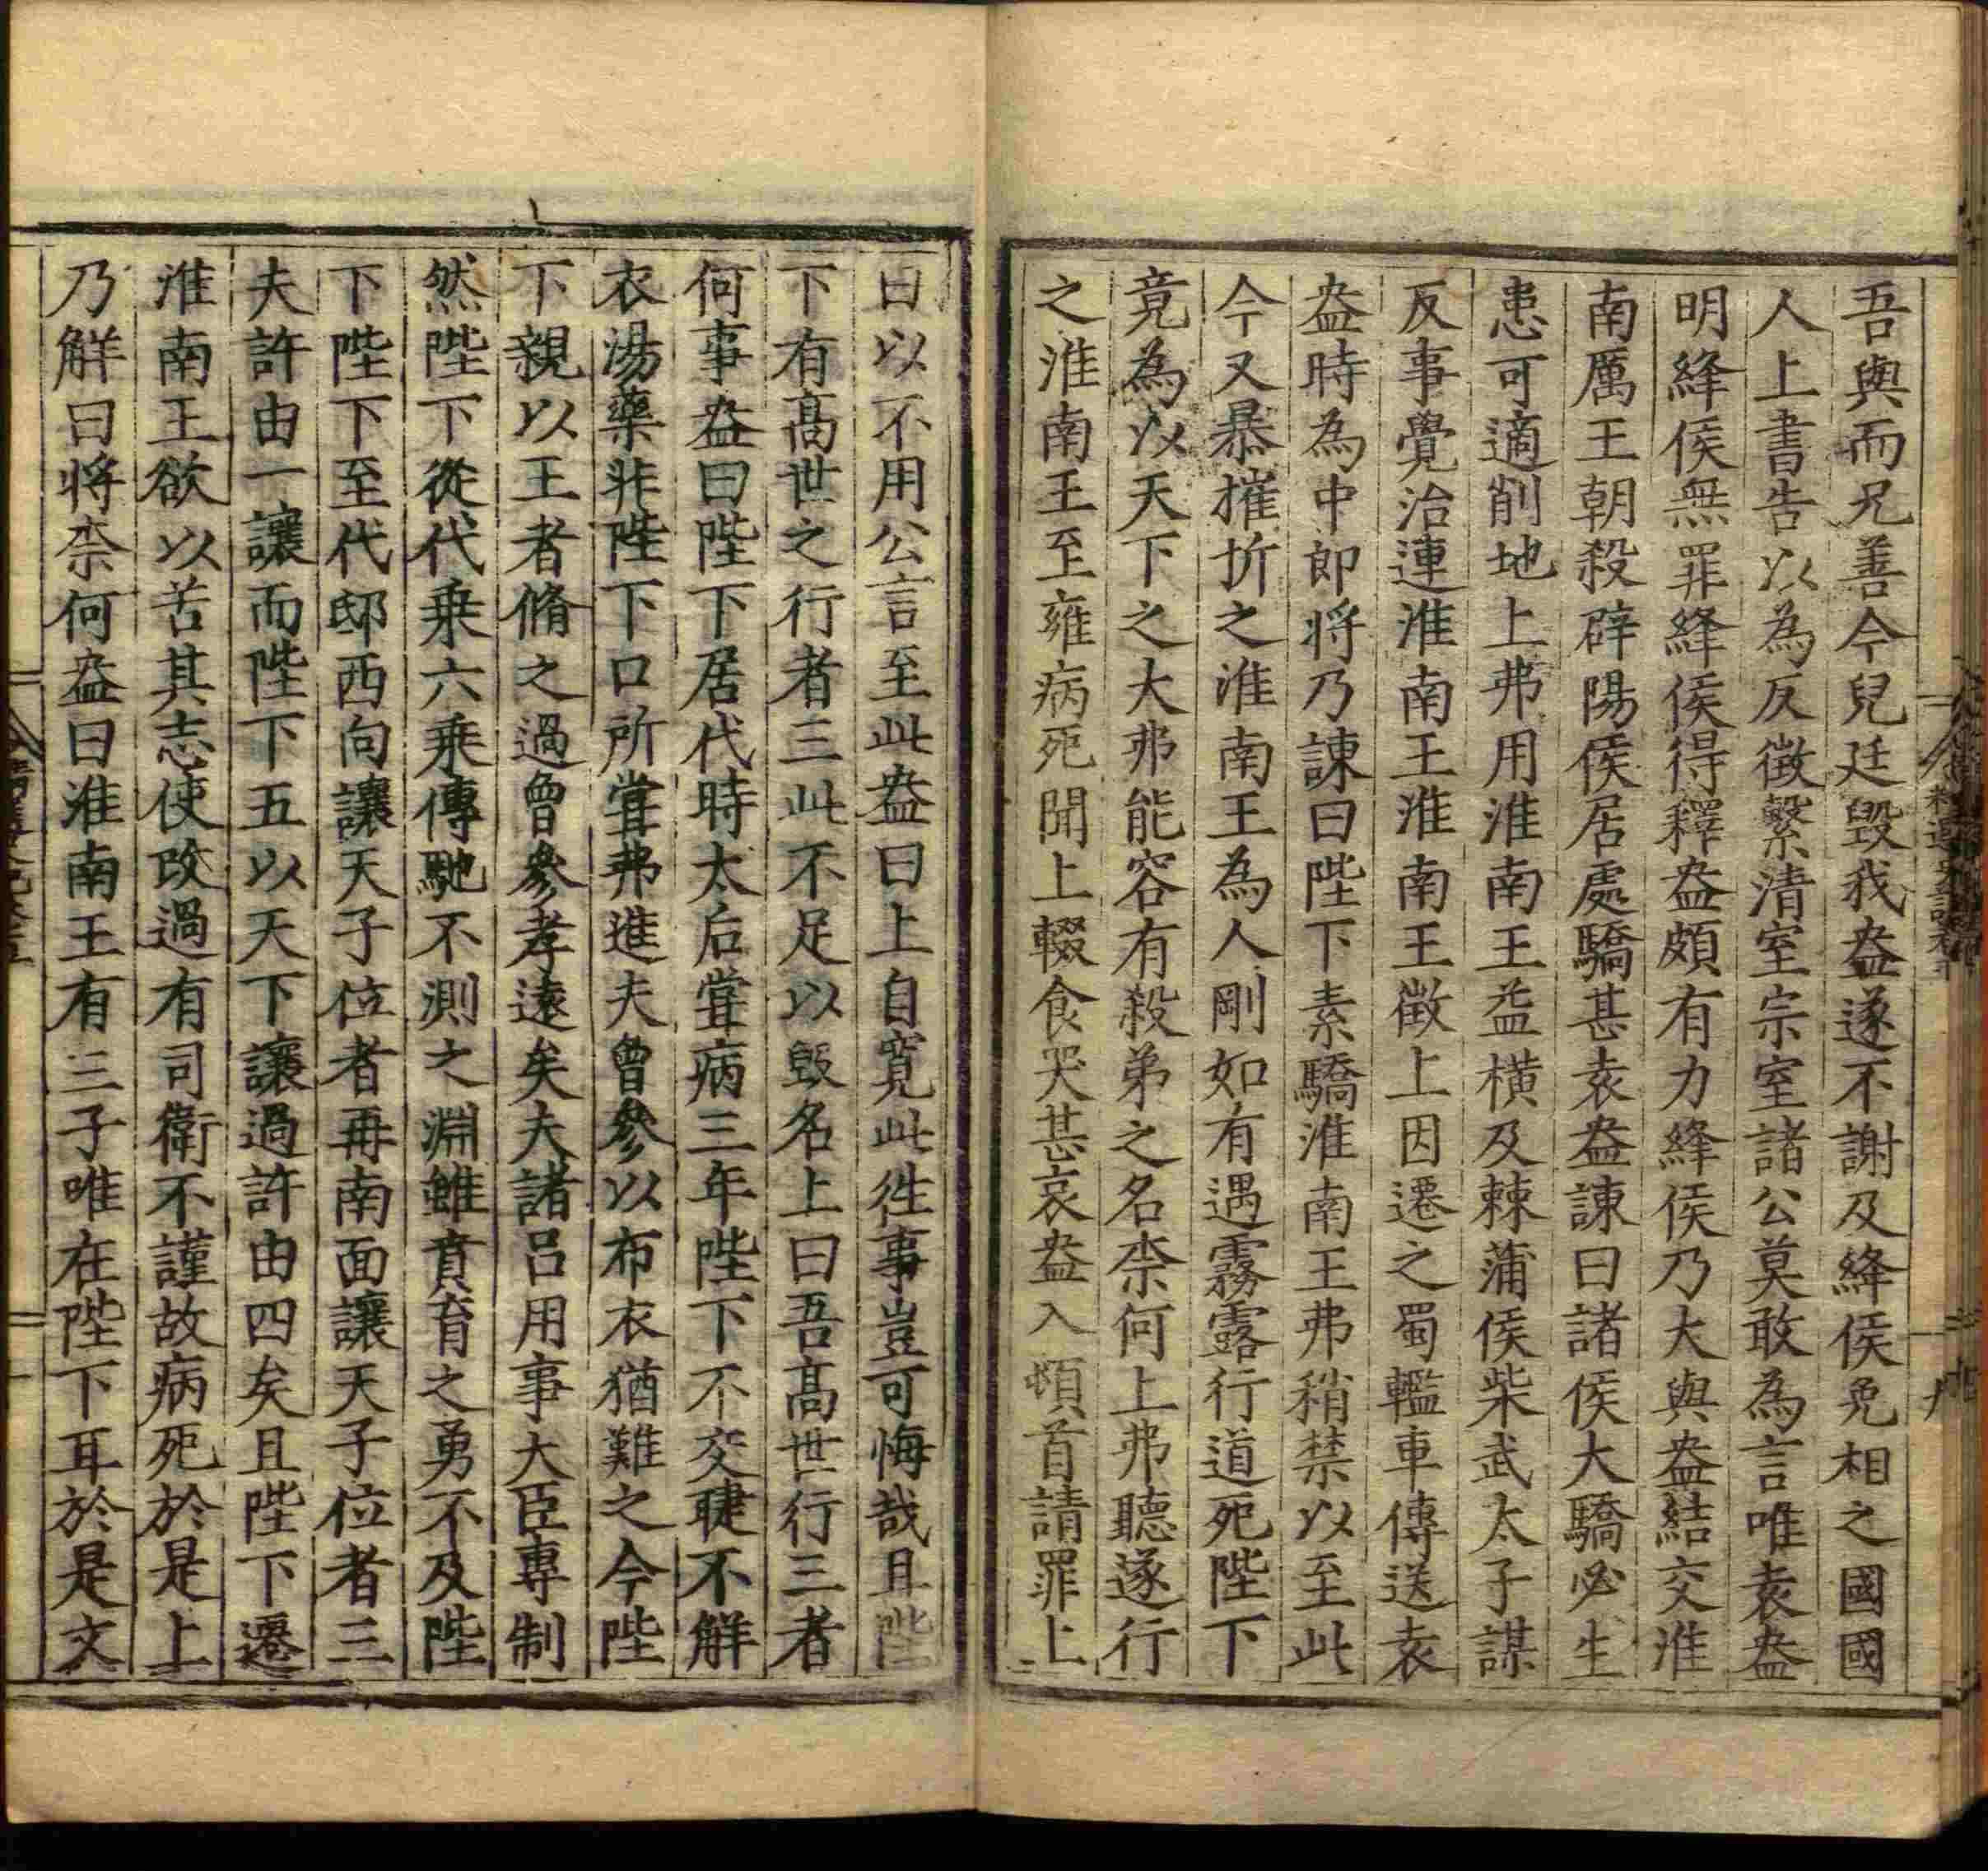 吾與而兄善今兒廷毀我盎遂不謝及絳侯免相之國國
人上書告以為反徵繫清室宗室諸公莫敢為言唯袁盎
明絳侯無罪絳侯得釋盎頗有力絳侯乃大與盎結交淮
南厲王朝殺辟陽侯居處驕甚袁盎諫曰諸侯大驕必生
患可適削地上弗用淮南王益橫及棘蒲侯柴武太子謀
反事覺治連淮南王淮南王徵上因遷之蜀轞車傳送袁
盎時為中郎將乃諫曰陛下素驕淮南王弗稍禁以至此
今又暴摧折之淮南王為人剛如有遇霧露行道死陛下
竟為以天下之大弗能容有殺弟之名柰何上弗聽遂行
之淮南王至雍病死聞上輟食哭甚哀盎入頓首請罪上
曰以不用公言至此盎曰上自寬此徃事豈可悔哉且陛
下有高世之行者三此不足以毀名上曰吾高世行三者
何事盎曰陛下居代時太后甞病三年陛下不交睫不解
衣湯藥非陛下口所甞弗進夫曾參以布衣猶難之今陛
下親以王者脩之過曾參孝遠矣夫諸呂用事大臣專制
然陛下從代乗六乗傳馳不測之淵雖賁育之勇不及陛
下陛下至代邸西向讓天子位者再南面讓天子位者三
夫許由一讓而陛下五以天下讓過許由四矣且陛下遷
淮南王欲以苦其志使改過有司衛不謹故病死於是上
乃解曰將柰何盎曰淮南王有三子唯在陛下耳於是文